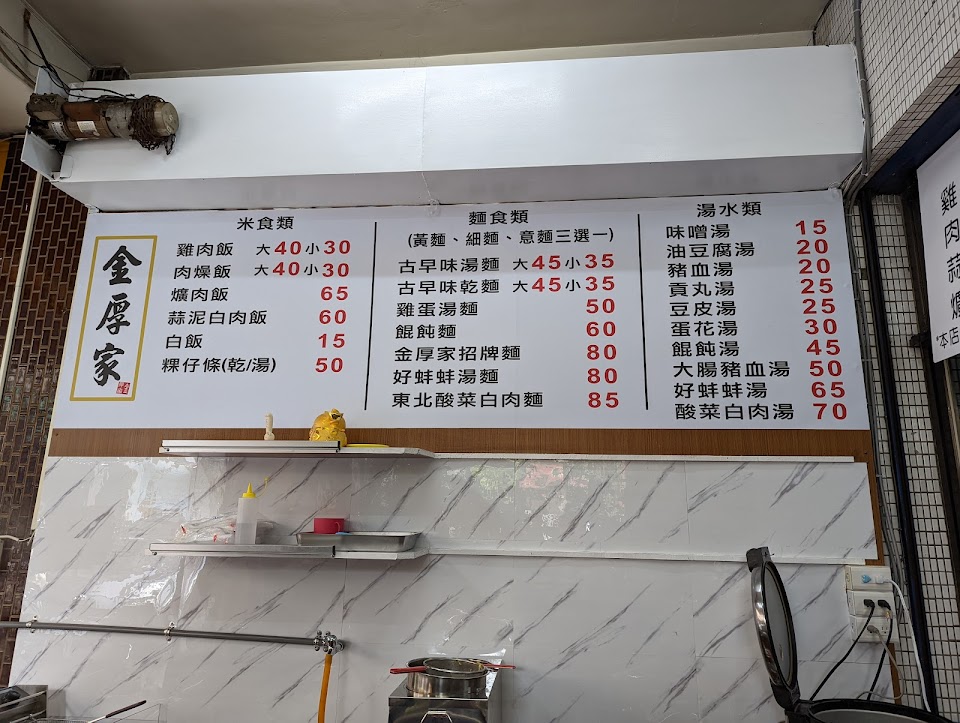 金厚家
米食類
雞肉飯 大40小30
肉燥飯 大40小30
爌肉飯 65
蒜泥白肉飯 60
白飯 15
粿仔條(乾/湯) 50
麵食類
(黃麵、細麵、意麵三選一)
古早味湯麵 大45小35
古早味乾麵 大45小35
雞蛋湯麵 50
餛飩麵 60
金厚家招牌麵 80
好蚌蚌湯麵 80
東北酸菜白肉麵 85
湯水類
味噌湯 15
油豆腐湯 20
豬血湯 20
貢丸湯 25
豆皮湯 25
蛋花湯 30
餛飩湯 45
大腸豬血湯 50
好蚌蚌湯 65
酸菜白肉湯 70
雞肉蒜爌
*本店